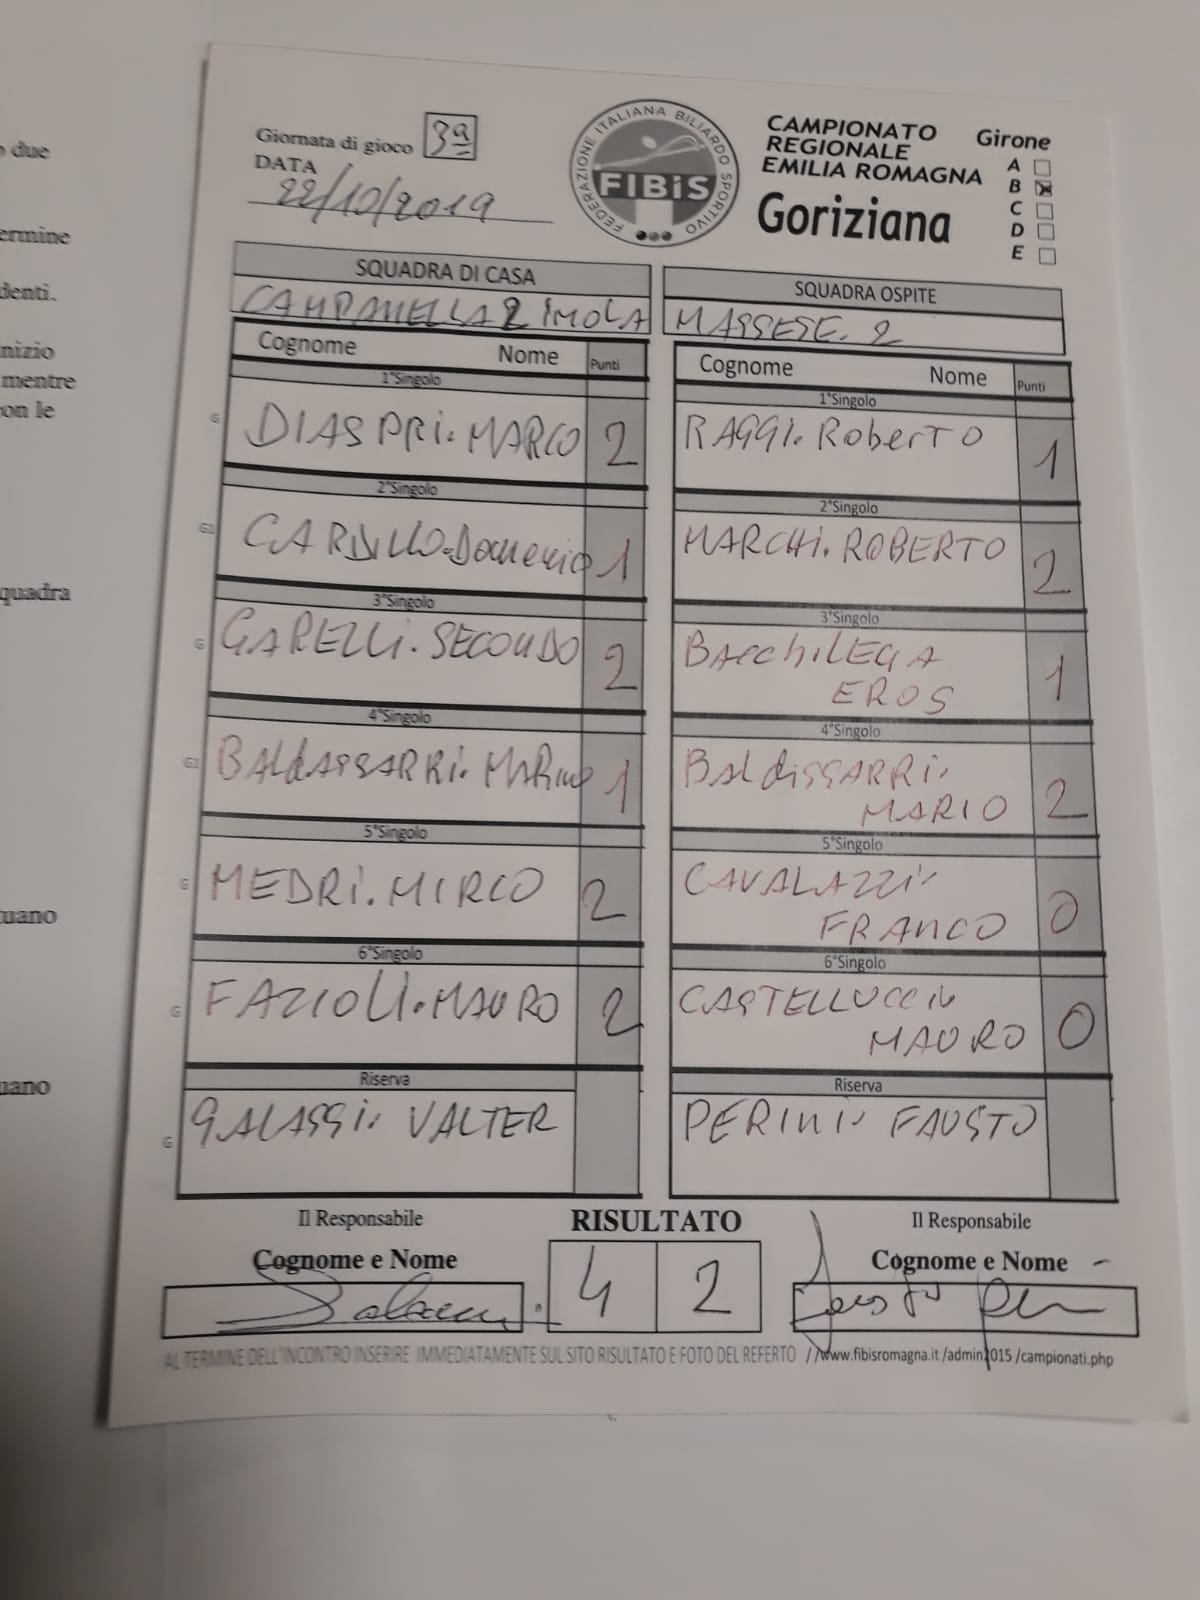 due
ermine
denti.
nizio
mentre
con le
quadra
tuano
uano
Giornata di gioco 3ª
DATA
22/10/2019
FEDERAZIONE ITALIANA BILIARDO SPORTIVO
FIBiS
CAMPIONATO
REGIONALE
EMILIA ROMAGNA
Goriziana
Girone
A
B
C
D
E
SQUADRA DI CASA
CAMPANELLA 2 IMOLA
SQUADRA OSPITE
MASSESE. 2
Cognome Nome Punti
Cognome Nome Punti
1°Singolo
1°Singolo
G DIASPRI. MARCO 2
RAGGI. RoberTO 1
2°Singolo
2°Singolo
G1 CARDILLO. Domenico 1
MARCHI. ROBERTO 2
3°Singolo
3°Singolo
G GARELLI. SECONDO 2
BAcchiLEGA
EROS 1
4°Singolo
4°Singolo
G1 BALdASSARRI. MARino 1
BALdiSSARRI.
MARIO 2
5°Singolo
5°Singolo
G MEDRI. MIRCO 2
CAVALAZZI
FRANCO 0
6°Singolo
6°Singolo
G FAZIOLI. MAURO 2
CASTELLUCCI
MAURO 0
Riserva
Riserva
G GALASSI. VALTER
PERINI. FAUSTO
Il Responsabile
Cognome e Nome
RISULTATO
4 2
Il Responsabile
Cognome e Nome
AL TERMINE DELL'INCONTRO INSERIRE IMMEDIATAMENTE SUL SITO RISULTATO E FOTO DEL REFERTO //www.fibisromagna.it /admin2015 /campionati.php